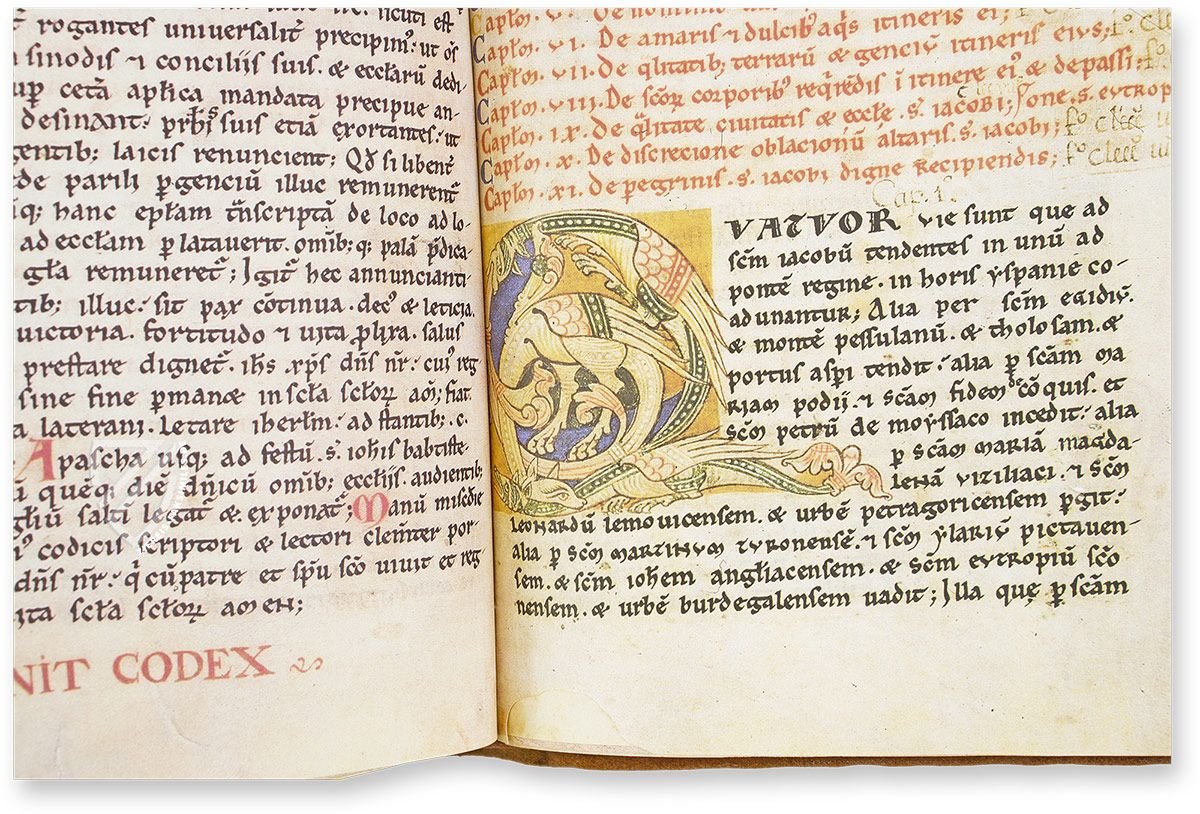 rogantes universalit̄ precipim᷒: ut oı̄s
sinodis ⁊ conciliis suis. & eccl̄arū dedi-
cetā apl̄ica mandata precipue an-
desinant: prb̄is suis etiā exortantes: ut
gentib; laicis renuncient; Qđ si libent̄
de parili p̱genciū illuc remunerent᷑
hanc ep̄łam t̄nscriptā de loco ad lo-
ad eccl̄am p̱latauerit. om̄ib; q; palā p̄dica
gl̄a remuneret᷑; Igit᷑ hec annuncianti-
tib; illuc: sit pax cōtinua. dec᷒ & leticia.
victoria. fortitudo ⁊ uita p̱lixa. salus
prestare dignet᷑. ih̄s. xp̄s dn̄s nr̄: cui᷒ reg
sine fine p̱manæ in scl̄a scl̄oꝝ am̄; fiat.
laterani. Letare ih̄erl̄m: ad stantib; .c.
A pascha usq; ad festū .s. ioh̄is babtiste.
queq; die dn̄icū om̄ib; eccl̄iis. audientib;
saltī legat᷑ & exponat᷑; Manū misedie
codicis scriptori & lectori clemīter por-
dn̄s nr̄: q̄ cū patre et sp̄u sc̄o uiuit et reg
scl̄a scl̄oꝝ amen;
NIT CODEX
Caplm̄. VI. De amaris ⁊ dulcib᷒ aq̄s itineris ei᷒;
Caplm̄. VII. De q̄litatib; terrarū & genciū itineris eius;
Caplm̄. VIII. De sc̄oꝝ corporib᷒ req̄rēdis ī itinere ei᷒ & de passi:
Caplm̄. IX. De q̄litate ciuitatis & eccl̄e .s. iacobi; one .s. eutrop
Caplm̄. X. De discrecione oblacionū altaris .s. iacobi;
Caplm̄. XI. De pegrinis .s. iacobi digne recipiendis;
Cap. 1.
QVATVOR vie sunt que ad
sc̄m iacobū tendentes in unū ad
pontē regine. in horis yspanie co-
adunantur; Alia per sc̄m egidiū.
& montē pessulanū. & tholosam. &
portus asp̱i tendit: alia p̱ sc̄am ma
riam podii. ⁊ sc̄am fidem de cōquis. et
sc̄m petrū de moyssaco incedit: alia
p̱ sc̄am mariā magda-
lenā viziliaci. ⁊ sc̄m
leonardū lemovicensem. & urbē petragoricensem p̱git:
alia p̱ sc̄m martinum turonensē. ⁊ sc̄m ylariū pictauen-
sem. & sc̄m ioh̄em angliacensem. & sc̄m eutropiū sc̄o
nensem. & urbē burdegalensem uadit; Illa quę p̱ sc̄am